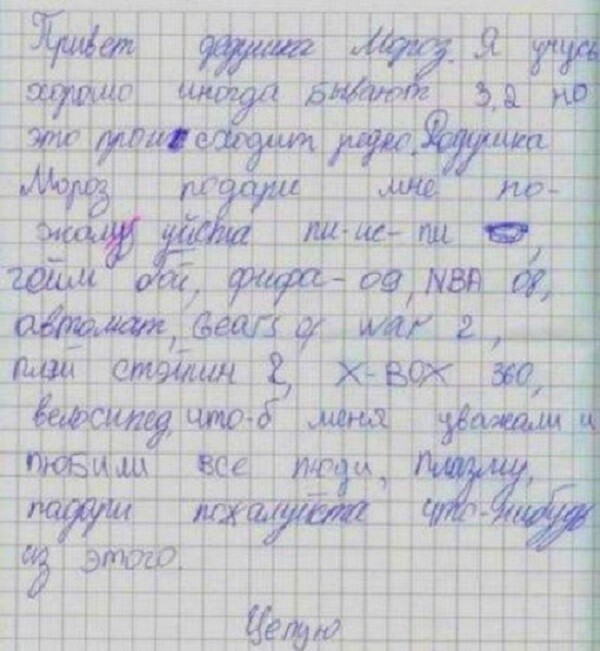 Привет дедушка Мороз. Я учусь
хорошо иногда бывают 3,2 но
это происходит редко. Додушка
Мороз подари мне по-
жалу уйста пи-ис-пи ,
гейм бой, фифа-09, NBA 08,
автомат, Gears of war 2,
плэй стэйшин 2, X-BOX 360,
велосипед, что-б меня уважали и
любили все люди, плазму,
падари пожалуйста что-нибудь
из этого.
Целую